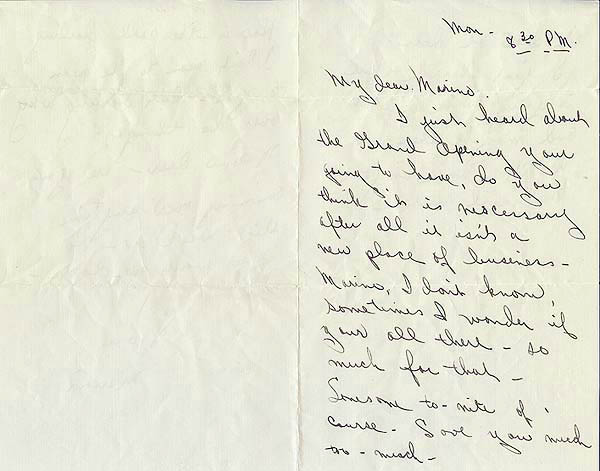 Mon - 8 30 P.M.
My dear Marino.
I just heard about
the Grand Opening your
going to have, do you
think it is neccessary
after all it isn't a
new place of business -
Marino, I don't know,
sometimes I wonder if
your all there - so
much for that -
Lonesome to-nite of
course - Love you much
too - much -